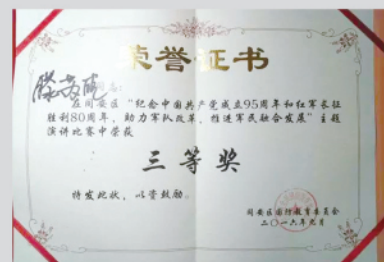 荣誉证书
同志:
在同安区“纪念中国共产党成立95周年和红军长征
胜利80周年,助力军队改革,推进军民融合发展”主题
演讲比赛中荣获
三等奖
特发此状,以资鼓励。
同安区国防教育委员会
二〇一六年月